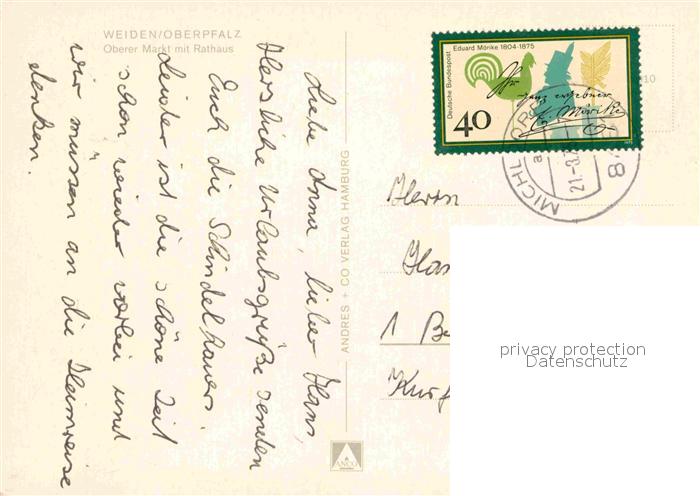 WEIDEN/OBERPFALZ
Oberer Markt mit Rathaus
Liebe Anna, lieber Hans,
Herzliche Urlaubsgrüße senden
Euch die Schindelhauers.
Leider ist die schöne Zeit
schon wieder vorbei und
wir müssen an die Heimreise
denken.
ANDRES + CO VERLAG HAMBURG
ANCO
Deutsche Bundespost
Eduard Mörike 1804-1875
Ihr
ganz ergebener
Ed. Mörike
40
MICHL
21.-8.75
84
10
Herrn
Han
1 Be
Kurf
privacy protection
Datenschutz